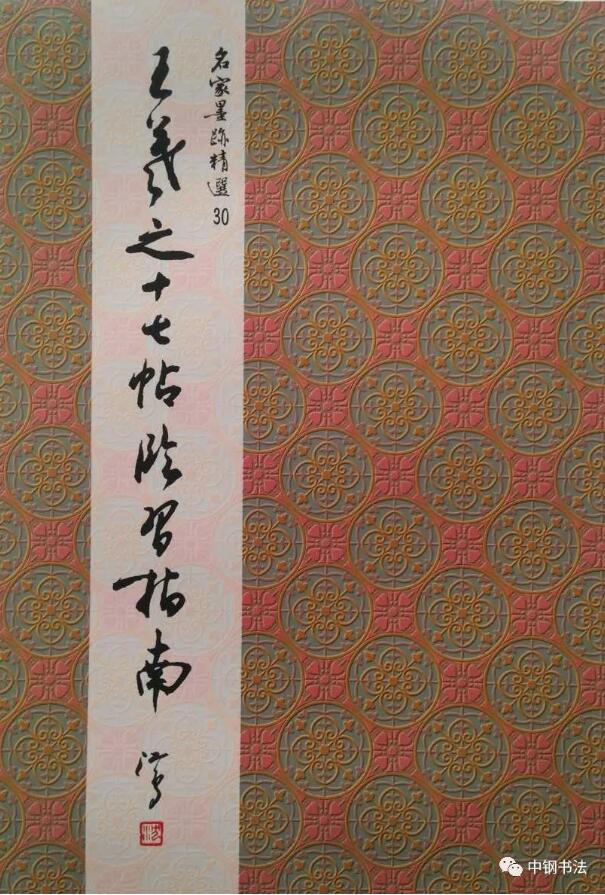 名家墨跡精選30
王羲之十七帖臨習指南
中钢书法